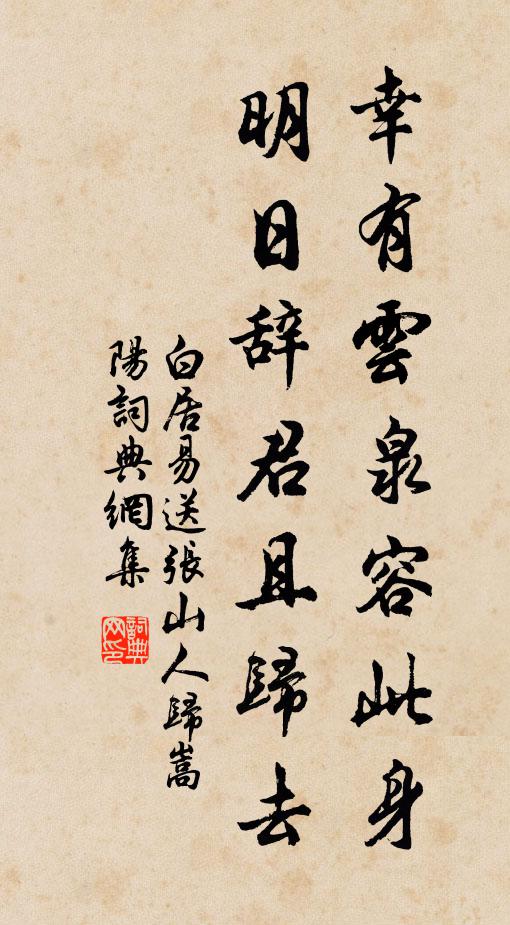 幸有雲泉容此身
明日辞君且歸去
白居易送張山人歸嵩
陽詞典網集
詞典
网印